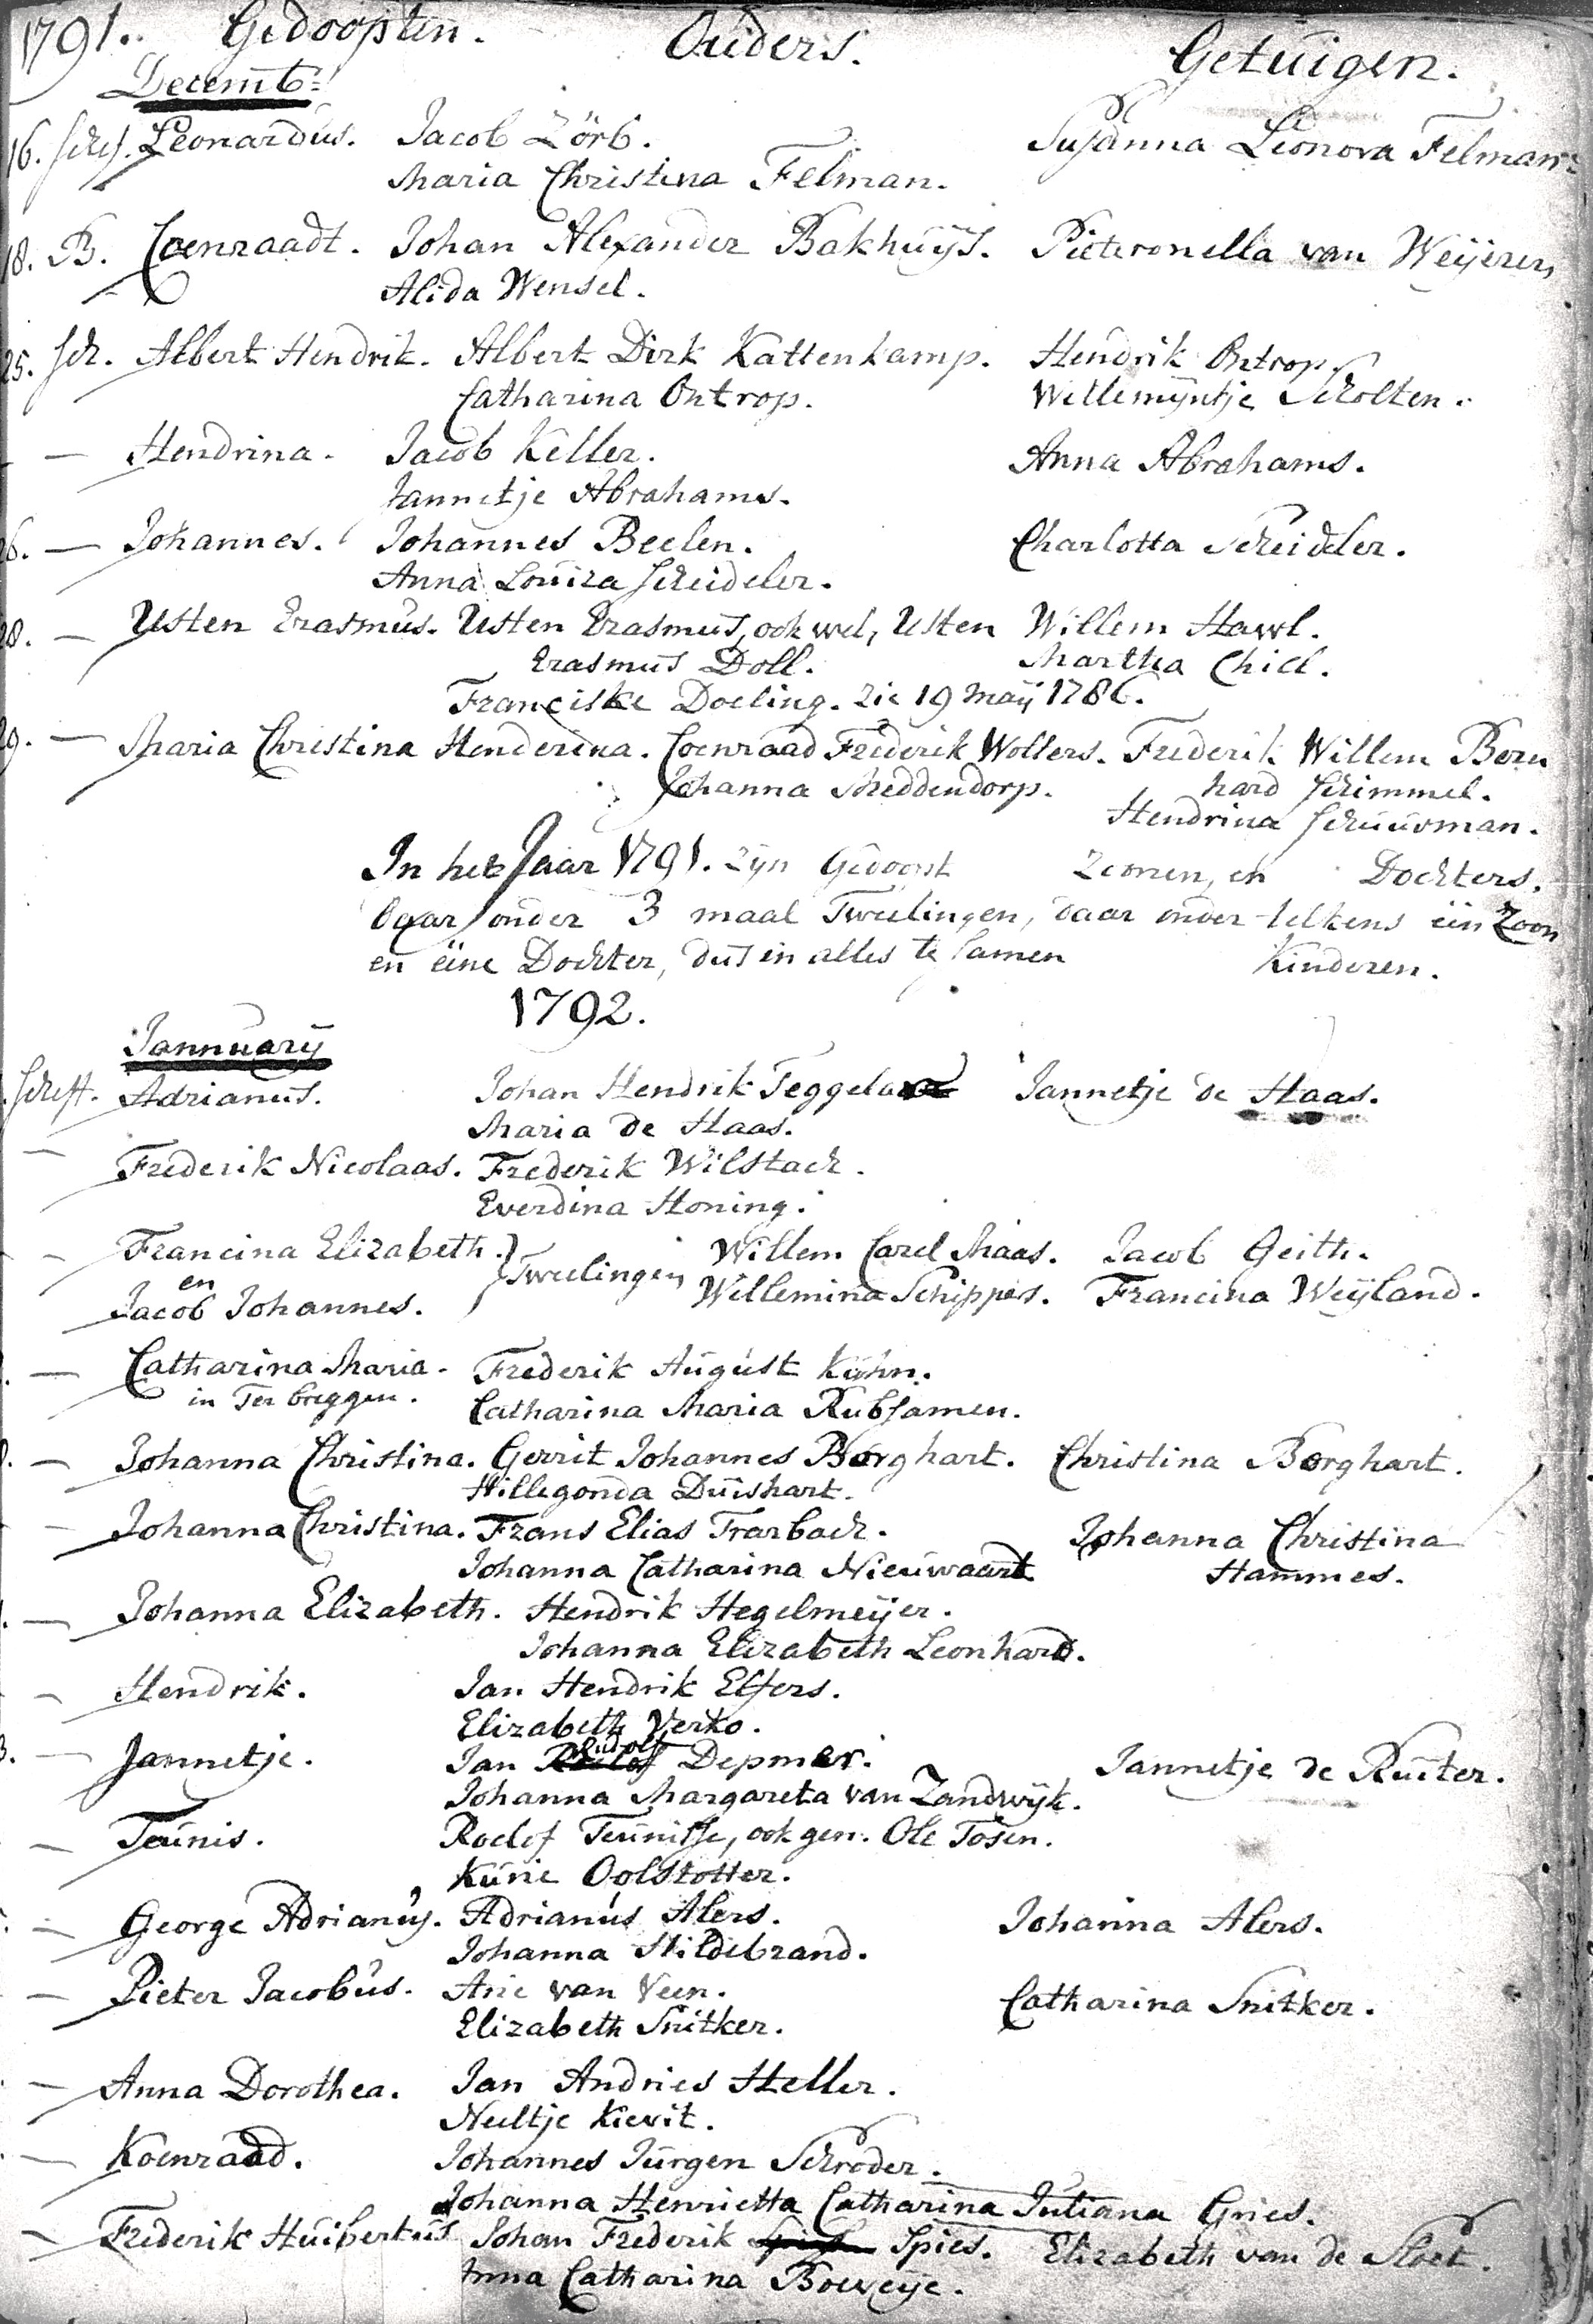 1791. Gedoopten. Ouders. Getuigen.
Decemb:
16. Leonardus. Jacob Zörb. Susanna Leonora Felman
Maria Christina Felman.
18. B. Coenraadt. Johan Alexander Bakhuijs. Pieteronella van Weijeren
Alida Wensel.
25. Sch. Albert Hendrik. Albert Dirk Kattenkamp. Hendrik Ontrop.
Catharina Ontrop. Willemijntje Scholten.
— Hendrina. Jacob Keller. Anna Abrahams.
Jannetje Abrahams.
26. — Johannes. Johannes Beelen. Charlotta Scheideler.
Anna Louiza Scheideler.
28. — Usten Erasmus. Usten Erasmus, ook wel, Usten Willem Hawl.
Erasmus Doll. Martha Chiel.
Franciske Doeling. Zie 19 Maij 1786.
29. — Maria Christina Henderina. Coenraad Frederik Wollers. Frederik Willem Bern
Johanna Meddendorp. hard Schimmel.
Hendrina Schuurman.
In het Jaar 1791. zijn Gedoopt Zoonen, en Dochters.
daar onder 3 maal Tweelingen, daar onder telkens één Zoon
en éene Dochter, dus in alles te samen Kinderen.
1792.
Jannuarij
Adrianus. Johan Hendrik Teggelaar Jannetje de Haas.
Maria de Haas.
— Frederik Nicolaas. Frederik Wilstach.
Everdina Honing.
— Francina Elizabeth. Willem Carel Maas. Jacob Geith.
en Tweelingen Willemina Schippers. Francina Weijland.
Jacob Johannes.
— Catharina Maria. Frederik August Kuhn.
in Ter bregge. Catharina Maria Rubsamen.
— Johanna Christina. Gerrit Johannes Borghart. Christina Borghart.
Hillegonda Duishart.
— Johanna Christina. Frans Elias Trarbach. Johanna Christina
Johanna Catharina Nieuwaart Hammes.
— Johanna Elizabeth. Hendrik Hegelmeijer.
Johanna Elizabeth Leonhard.
— Hendrik. Jan Hendrik Elfers.
Elizabeth Verko.
Rudolf
— Jannetje. Jan Depmer. Jannetje de Ruiter.
Johanna Margareta van Zandwijk.
— Teunis. Roelof Teunisse, ook gen. Ole Tosen.
Kunie Oolstotter.
— George Adrianus. Adrianus Alers. Johanna Alers.
Johanna Hildebrand.
— Pieter Jacobus. Arie van Veen. Catharina Snitker.
Elizabeth Snitker.
— Anna Dorothea. Jan Andries Heller.
Neeltje Kievit.
— Koenraad. Johannes Jurgen Schroder.
Johanna Henrietta Catharina Juliana Gries.
— Frederik Huibertus Johan Frederik Spies. Elizabeth van de Sloet.
Anna Catharina Boeweije.